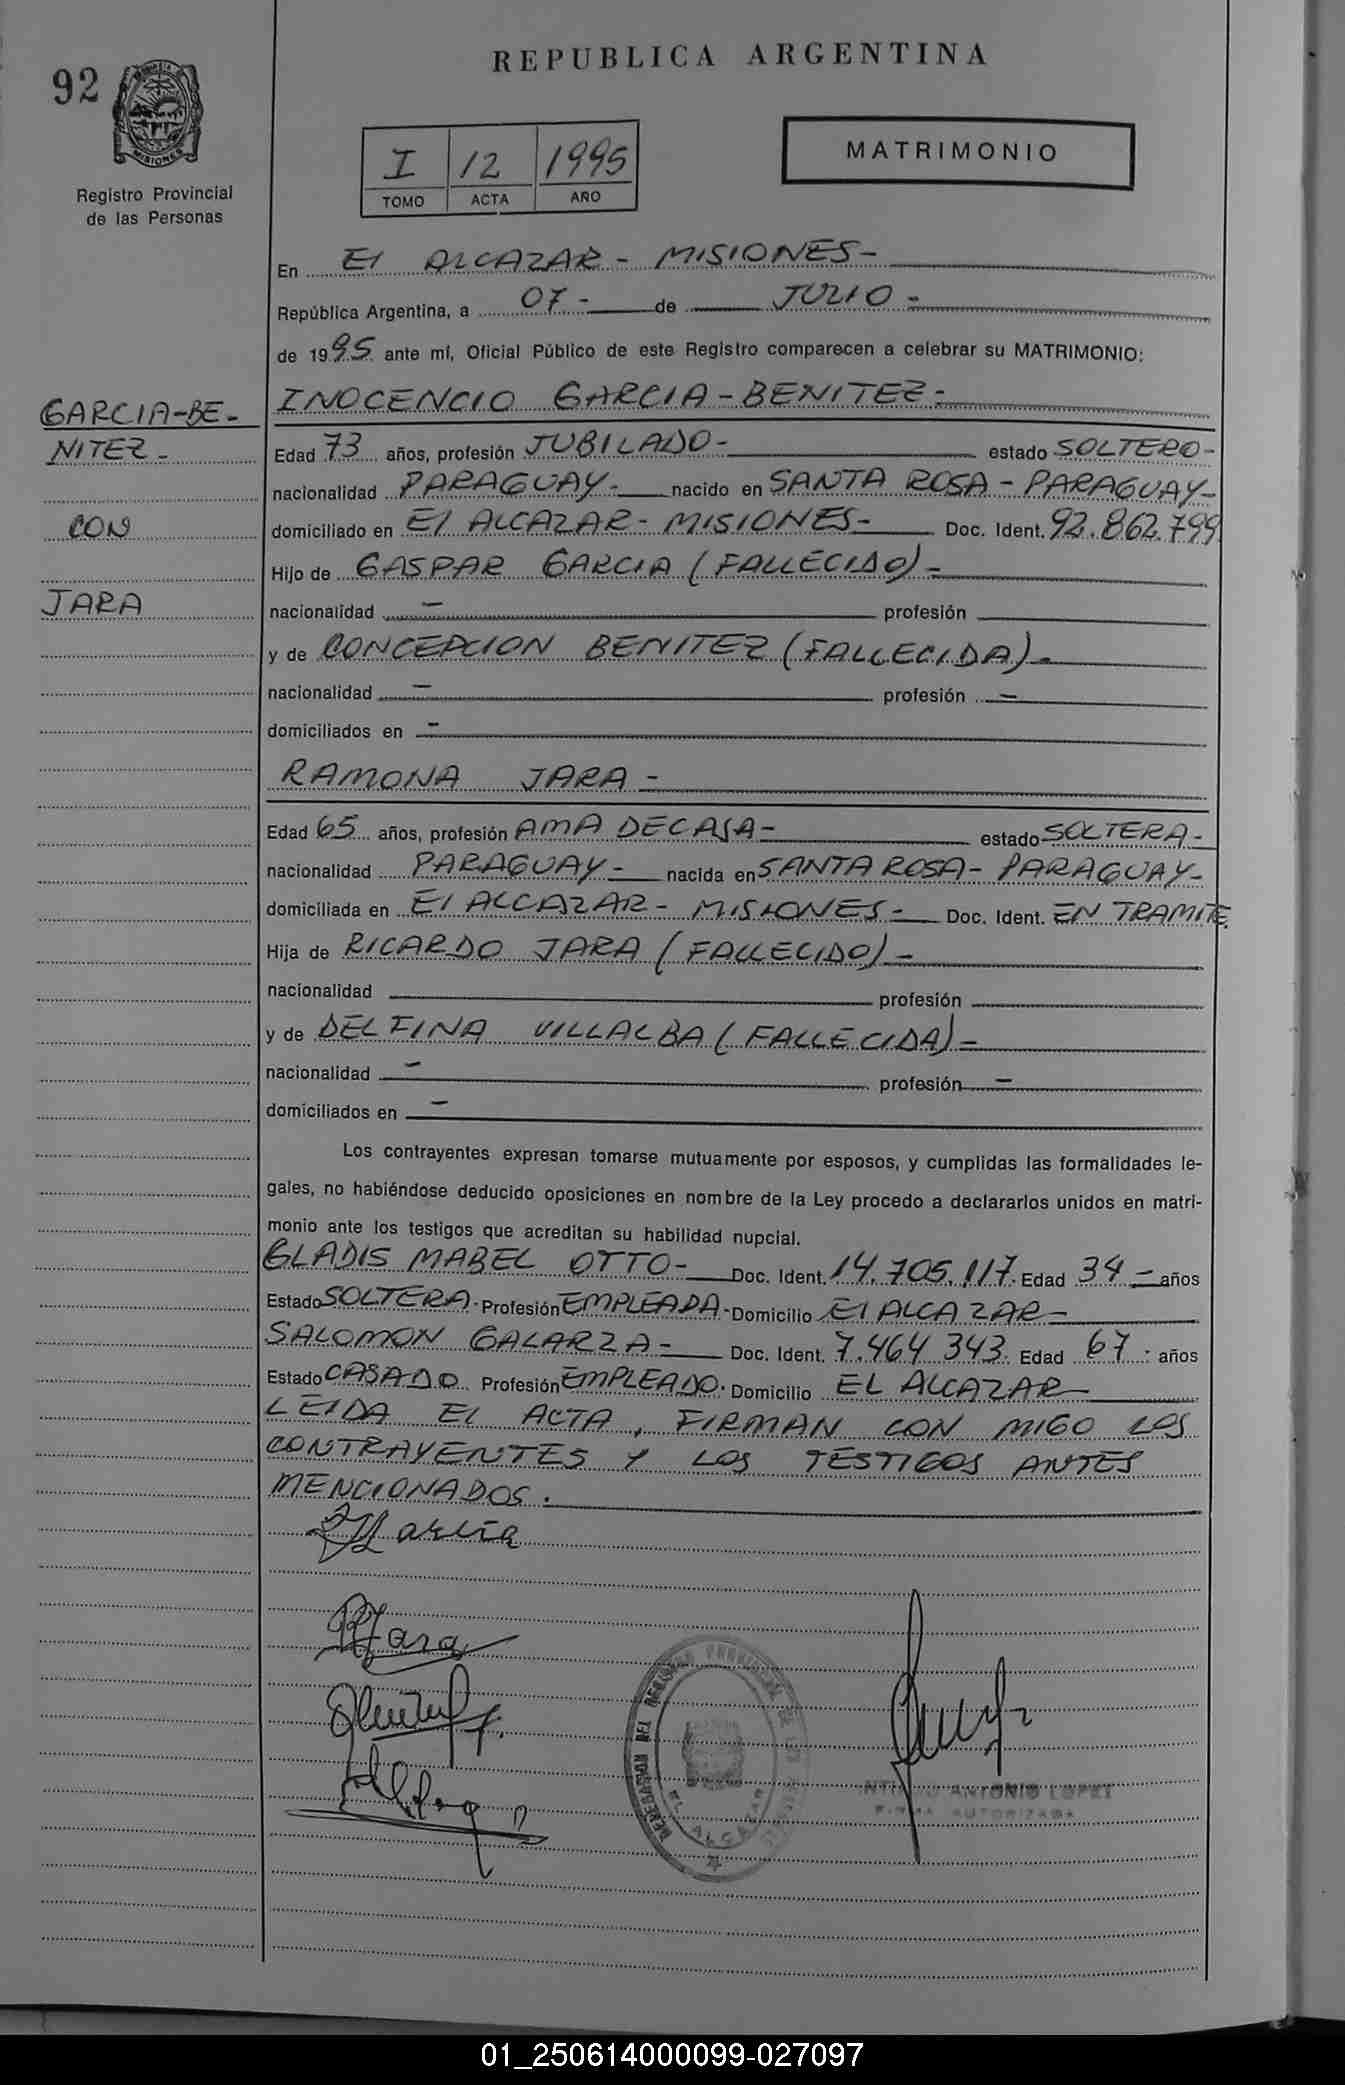 REPUBLICA ARGENTINA
92
MISIONES
Registro Provincial
de las Personas
I 12 1995
TOMO ACTA AÑO
MATRIMONIO
En El ALCAZAR - MISIONES -
República Argentina, a 07 - de JULIO -
de 1995 ante mí, Oficial Público de este Registro comparecen a celebrar su MATRIMONIO:
GARCIA-BE-
NITEZ -
CON
JARA
INOCENCIO GARCIA - BENITEZ -
Edad 73 años, profesión JUBILADO - estado SOLTERO -
nacionalidad PARAGUAY - nacido en SANTA ROSA - PARAGUAY -
domiciliado en El ALCAZAR - MISIONES - Doc. Ident. 92.862.799
Hijo de GASPAR GARCIA (FALLECIDO) -
nacionalidad - profesión
y de CONCEPCION BENITEZ (FALLECIDA) -
nacionalidad - profesión -
domiciliados en -
RAMONA JARA -
Edad 65 años, profesión AMA DE CASA - estado SOLTERA -
nacionalidad PARAGUAY - nacida en SANTA ROSA - PARAGUAY -
domiciliada en El ALCAZAR - MISIONES - Doc. Ident. EN TRAMITE
Hija de RICARDO JARA (FALLECIDO) -
nacionalidad profesión
y de DELFINA VILLALBA (FALLECIDA) -
nacionalidad - profesión -
domiciliados en -
Los contrayentes expresan tomarse mutuamente por esposos, y cumplidas las formalidades le-
gales, no habiéndose deducido oposiciones en nombre de la Ley procedo a declararlos unidos en matri-
monio ante los testigos que acreditan su habilidad nupcial.
GLADIS MABEL OTTO - Doc. Ident. 14.705.117. Edad 34 - años
Estado SOLTERA. Profesión EMPLEADA - Domicilio El ALCAZAR -
SALOMON GALARZA - Doc. Ident. 7.464 343. Edad 67 . años
Estado CASADO Profesión EMPLEADO. Domicilio EL ALCAZAR
LEIDA El ACTA, FIRMAN CON MIGO LOS
CONTRAYENTES Y LOS TESTIGOS ANTES
MENCIONADOS.
Garcia
RJara
DELEGACION DEL REGISTRO PROVINCIAL DE LAS
EL ALCAZAR
ANTONIO LOPEZ
FIRMA AUTORIZADA
01_250614000099-027097